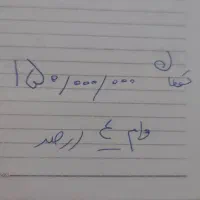 ۱۵۰/۰۰۰/۰۰۰
وام ۴ درصد